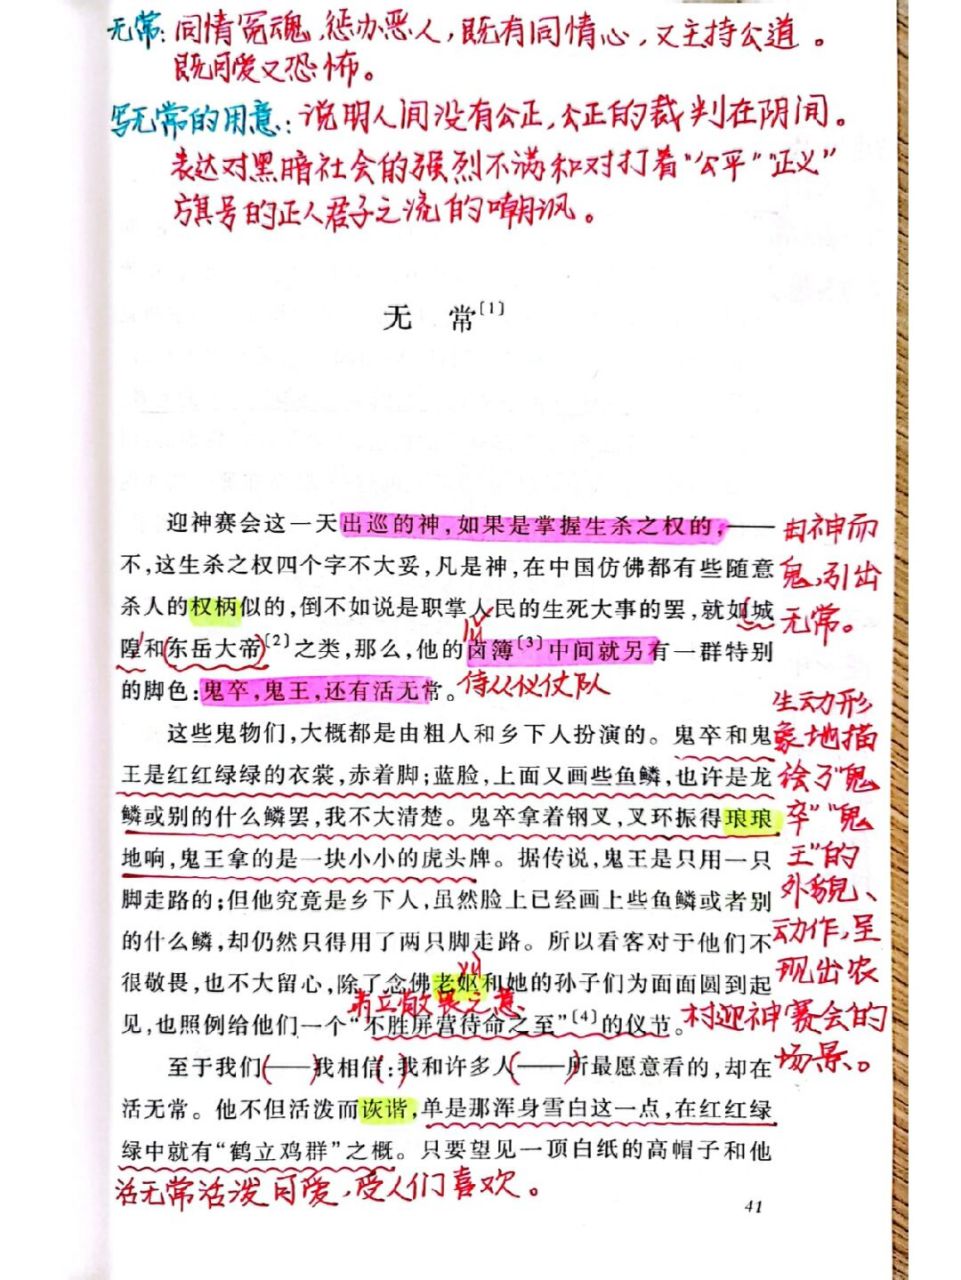 无常：同情冤魂，惩办恶人，既有同情心，又主持公道。
既可爱又恐怖。
写无常的用意：说明人间没有公正，公正的裁判在阴间。
表达对黑暗社会的强烈不满和对打着“公平”“正义”
旗号的正人君子之流的嘲讽。
无 常[1]
迎神赛会这一天出巡的神，如果是掌握生杀之权的，——
不，这生杀之权四个字不大妥，凡是神，在中国仿佛都有些随意
杀人的权柄似的，倒不如说是职掌人民的生死大事的罢，就如城
隍和东岳大帝[2]之类，那么，他的卤簿[3]中间就另有一群特别
的脚色：鬼卒，鬼王，还有活无常。
侍从仪仗队
由神而
鬼，引出
无常。
这些鬼物们，大概都是由粗人和乡下人扮演的。鬼卒和鬼
王是红红绿绿的衣裳，赤着脚；蓝脸，上面又画些鱼鳞，也许是龙
鳞或别的什么鳞罢，我不大清楚。鬼卒拿着钢叉，叉环振得琅琅
地响，鬼王拿的是一块小小的虎头牌。据传说，鬼王是只用一只
脚走路的；但他究竟是乡下人，虽然脸上已经画上些鱼鳞或者别
的什么鳞，却仍然只得用了两只脚走路。所以看客对于他们不
很敬畏，也不大留心，除了念佛老妪和她的孙子们为面面圆到起
yù
见，也照例给他们一个“不胜屏营待命之至”[4]的仪节。
生动形
象地描
绘了“鬼
卒”“鬼
王”的
外貌、
动作，呈
现出农
村迎神赛会的
场景。
至于我们(——我相信：我和许多人(——所最愿意看的，却在
活无常。他不但活泼而诙谐，单是那浑身雪白这一点，在红红绿
绿中就有“鹤立鸡群”之概。只要望见一顶白纸的高帽子和他
活无常活泼可爱，受人们喜欢。
41